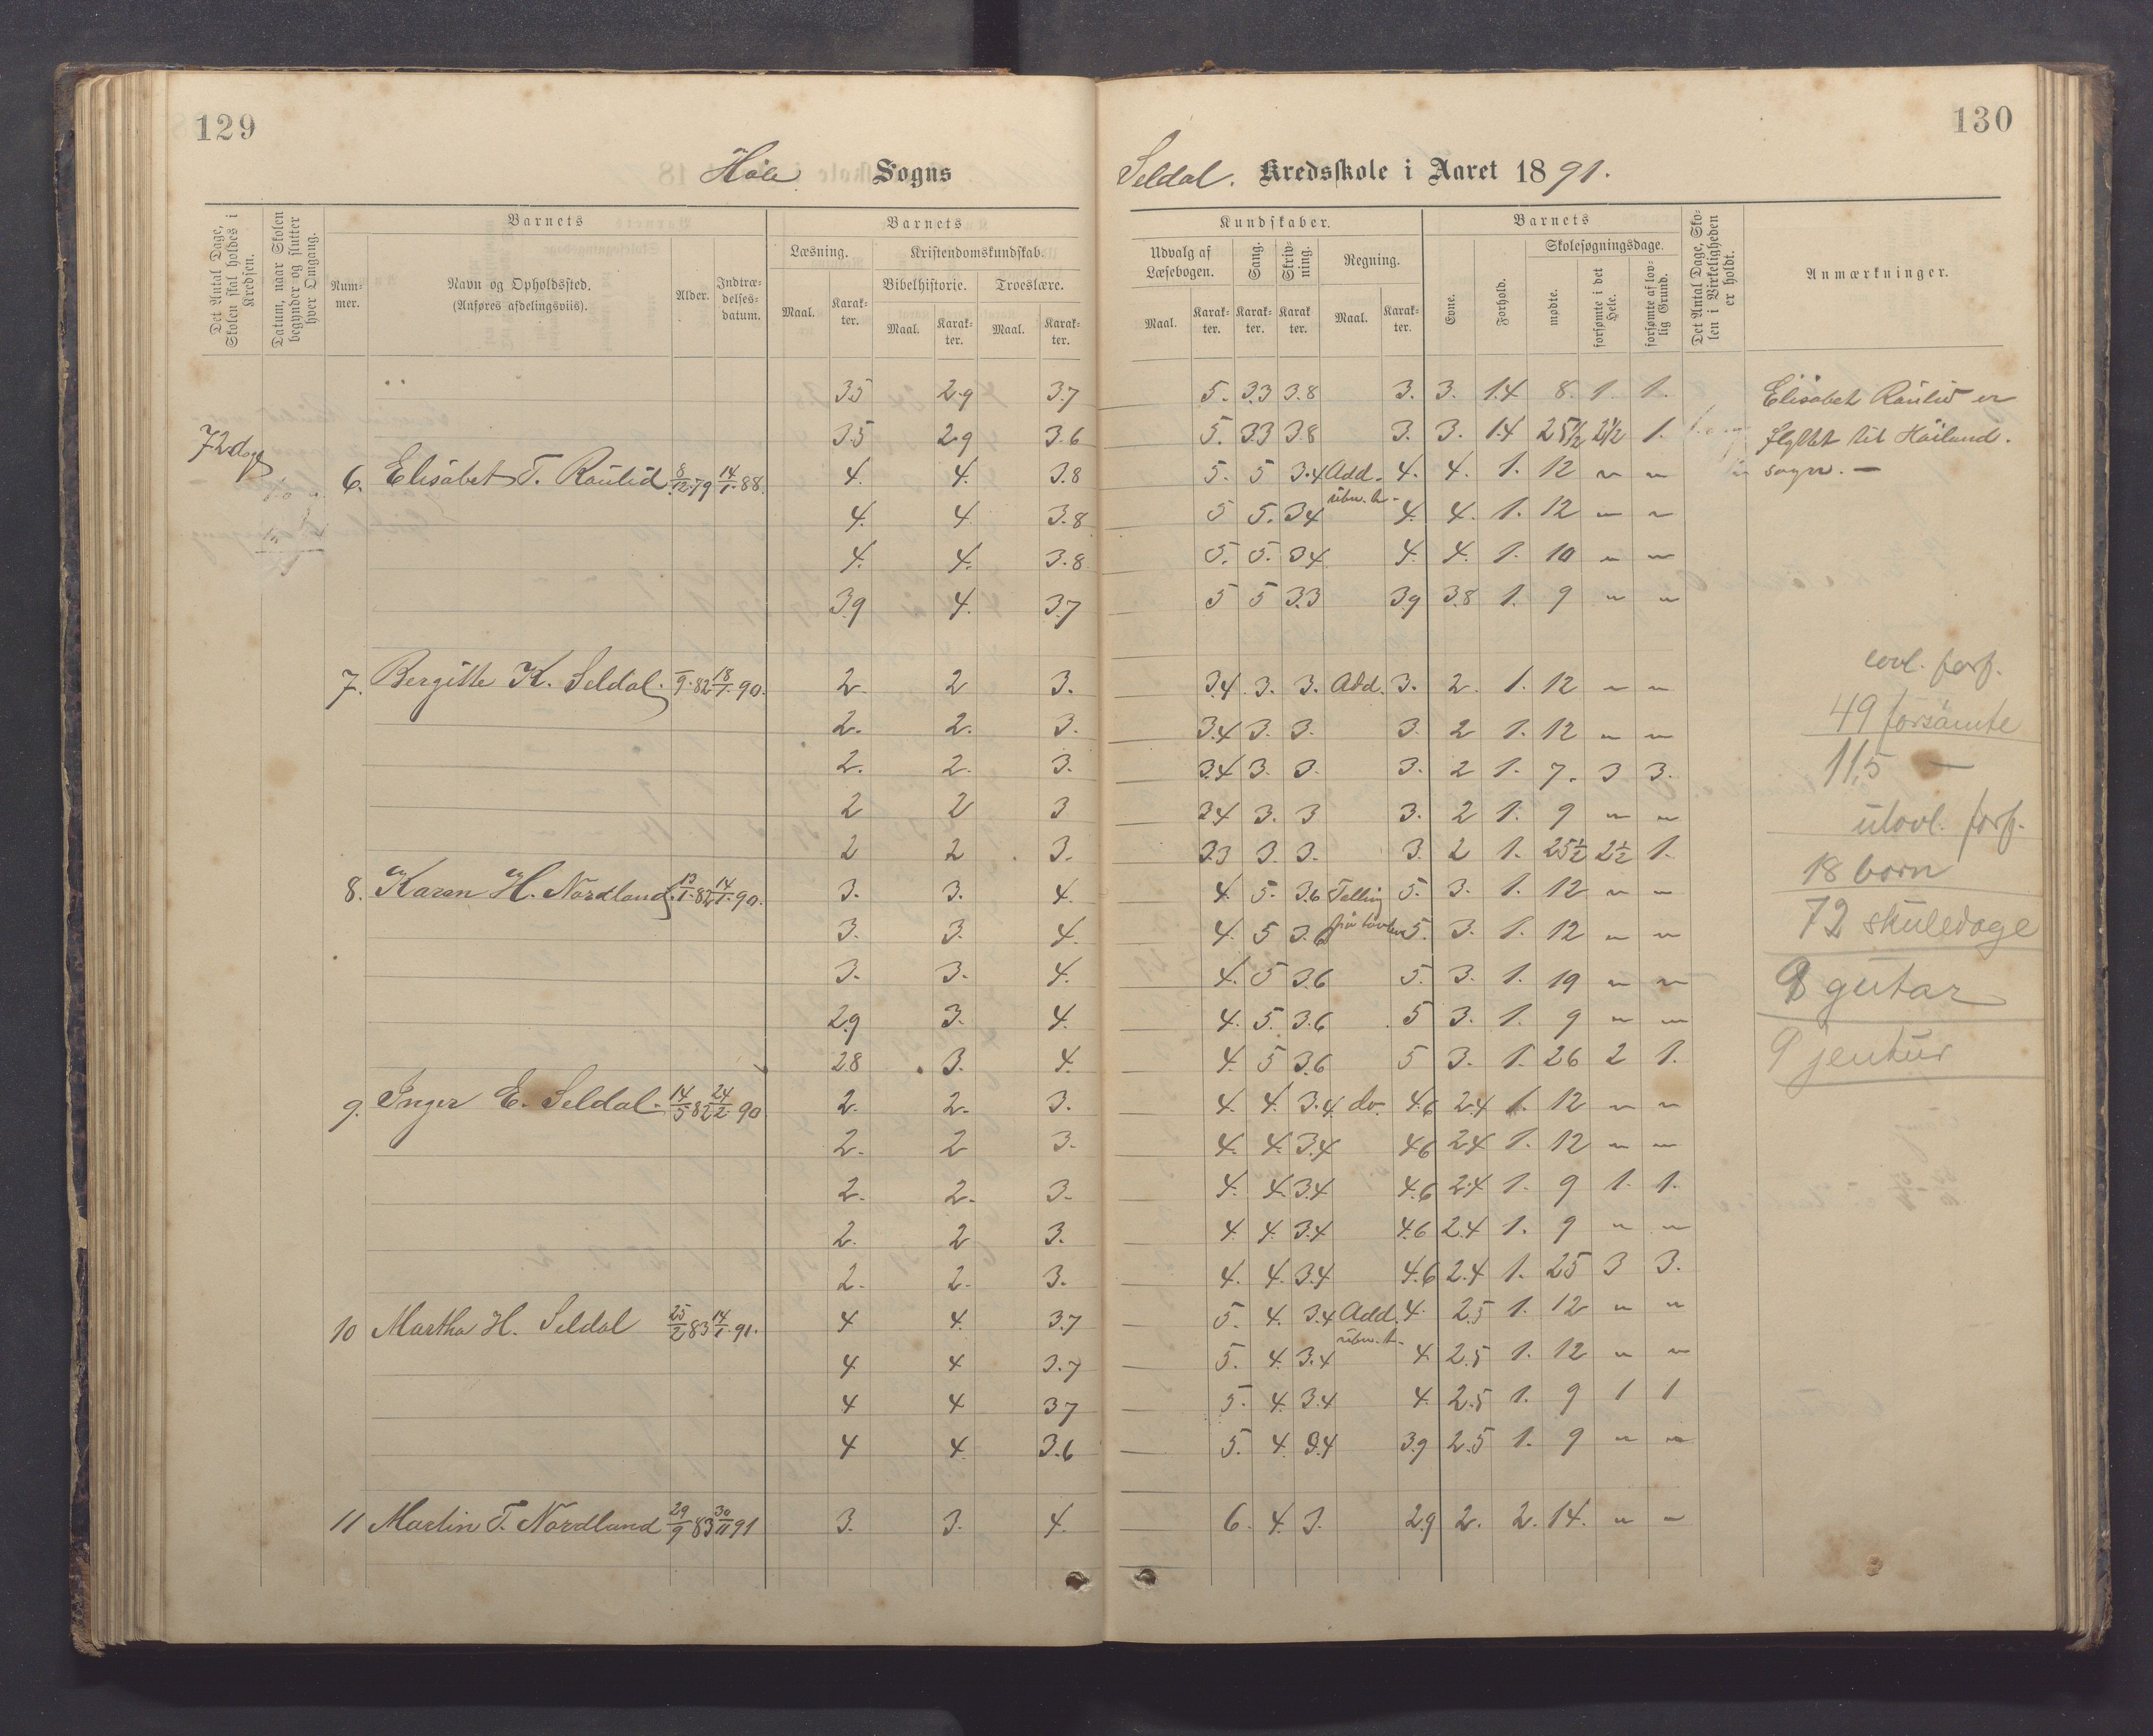 129
130
Høle Sogns
Seldal. Kredsskole i Aaret 1891.
Det Antal Dage, Skolen skal holdes i Kredsen.
Datum, naar Skolen begynder og slutter hver Omgang.
Barnets
Nummer.
Navn og Opholdssted. (Anføres afdelingsviis).
Alder.
Indtrædelsesdatum.
Barnets
Læsning.
Kristendomskundskab.
Bibelhistorie.
Troeslære.
Maal.
Karakter.
Maal.
Karakter.
Maal.
Karakter.
Kundskaber.
Udvalg af Læsebogen.
Sang.
Skrivning.
Regning.
Maal.
Karakter.
Karakter.
Karakter.
Maal.
Karakter.
Barnets
Evne.
Forhold.
Skolesøgningsdage.
mødte.
forsømte i det Hele.
forsømte af lovlig Grund.
Det Antal Dage, Skolen i Virkeligheden er holdt.
Anmærkninger.
3.5 2.9 3.7 5. 3.3 3.8 3. 3. 1.4 8. 1. 1. Elisabet Raulid er
72 dage 3.5 2.9 3.6 5. 3.3 3.8 3. 3. 1.4 25½ 2½ 1. flyttet til Høiland.
6. Elisabet T. Raulid 8/12 79 14/1 88. 4. 4. 3.8 5. 5 3.4 Add. 4. 4. 1. 12 " " sogn. —
4. 4. 3.8 5 5. 3.4 4. 4. 1. 12 " "
4. 4. 3.8 5. 5. 3.4 4. 4. 1. 10 " "
3.9 4. 3.7 5 5 3.3 3.9 3.8 1. 9 " "
7. Bergitte K. Seldal. 82 18/1 90. 2. 2 3. 3.4 3. 3. Add. 3. 2. 1. 12 " " lovl. forf.
2. 2. 3. 3.4 3. 3. 3. 2 1. 12 " " 49 forsømte
2. 2. 3. 3.4 3. 3. 3. 2 1. 7. 3 3. 11,5 —
2 2 3 3.4 3. 3 3. 2 1. 9 " " ulovl. forf.
2 2 3. 3.3 3. 3. 3. 2 1. 25½ 2½ 1.
8. Karen H. Nordland. 13/1 82 14/1 90. 3. 3. 4. 4. 5. 3.6 Telling 5. 3. 1. 12 " " 18 born
3. 3. 4. 4. 5 3.6 5. 3. 1. 12 " " 72 skuledage
3. 3. 4. 4. 5 3.6 5. 3. 1. 19 " " 9 gutar
2.9 3. 4. 4. 5. 3.6 5 3. 1. 9 " "
2.8 3. 4. 4. 5 3.6 5 3. 1. 26 2 1. 9 jentur
9. Inger E. Seldal. 14/5 82 24/2 90 2. 2. 3. 4. 4. 3.4 do. 4.6 2.4 1. 12 " "
2. 2 3. 4. 4. 3.4 4.6 2.4 1. 12 " "
2. 2. 3. 4. 4. 3.4 4.6 2.4 1. 9 1. 1.
2. 2 3. 4. 4. 3.4 4.6 2.4 1. 9 " "
2. 2. 3. 4. 4. 3.4 4.6 2.4 1. 25 3 3.
10 Martha H. Seldal 25/2 83 14/1 91. 4 4. 3.7 5. 4. 3.4 Add. 4. 2.5 1. 12 " "
4 4 3.7 5. 4. 3.4 4. 2.5 1. 12 " "
4 4 3.7 5. 4. 3.4 4. 2.5 1. 9 1 1
4 4 3.6 5. 4. 3.4 3.9 2.5 1. 9 " "
11 Martin T. Nordland 29/9 83 30/11 91 3. 3. 4. 6. 4. 3. 2.9 2. 2. 14. " "